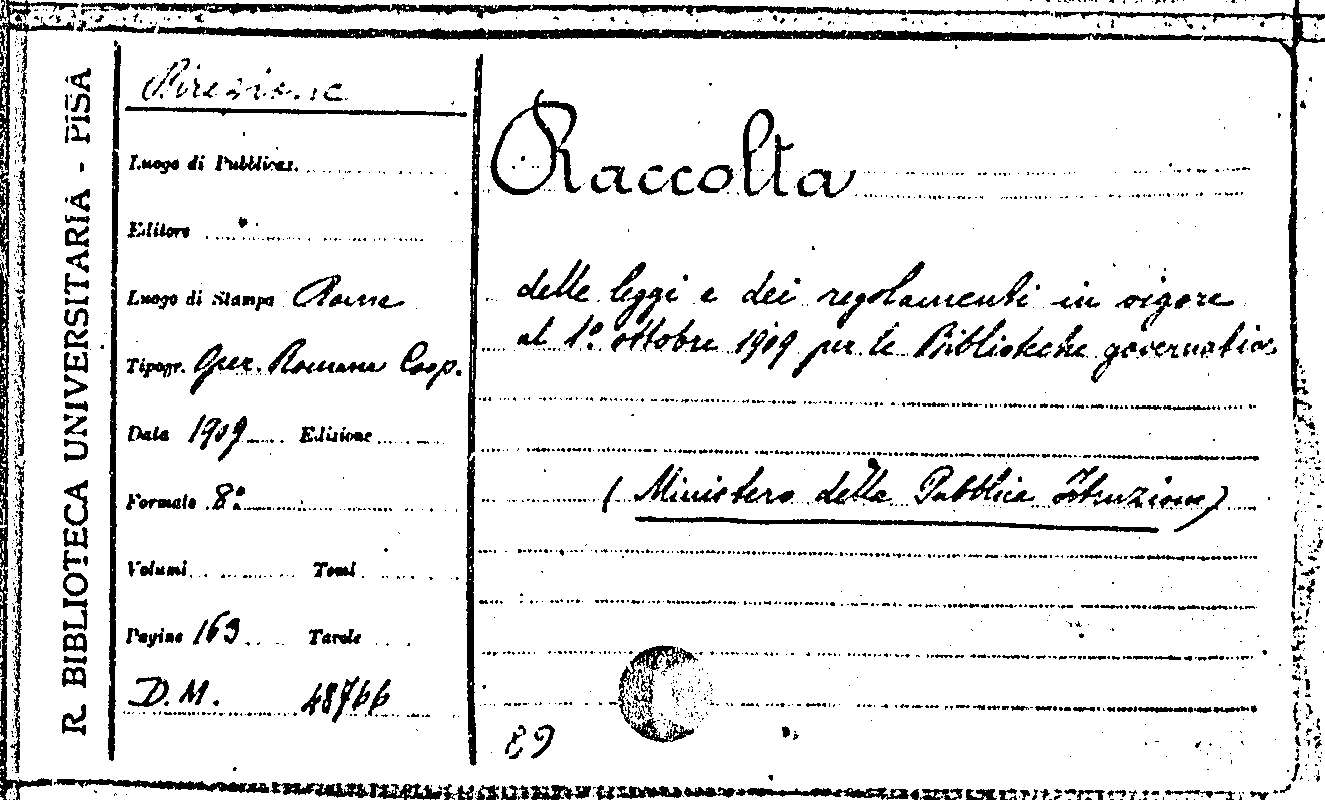 R. BIBLIOTECA UNIVERSITARIA - PISA
Direzione
Luogo di Pubblicaz.
Editore
Luogo di Stampa Roma
Tipogr. Oper. Romana Coop.
Data 1909 Edizione
Formato 8º
Volumi Tomi
Pagine 163 Tavole
D.M. 48766
Raccolta
delle leggi e dei regolamenti in vigore
al 1º ottobre 1909 per le Biblioteche governative
( Ministero della Pubblica Istruzione )
89